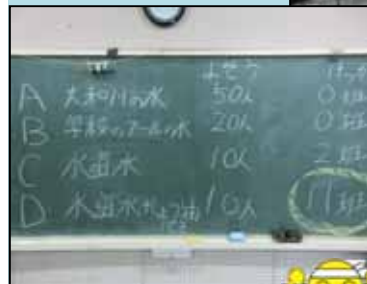 よそう けっか
A 大和川の水 50人 0班
B 学校のプールの水 20人 0班
C 水道水 10人 2班
D 水道水+ 10人 11班